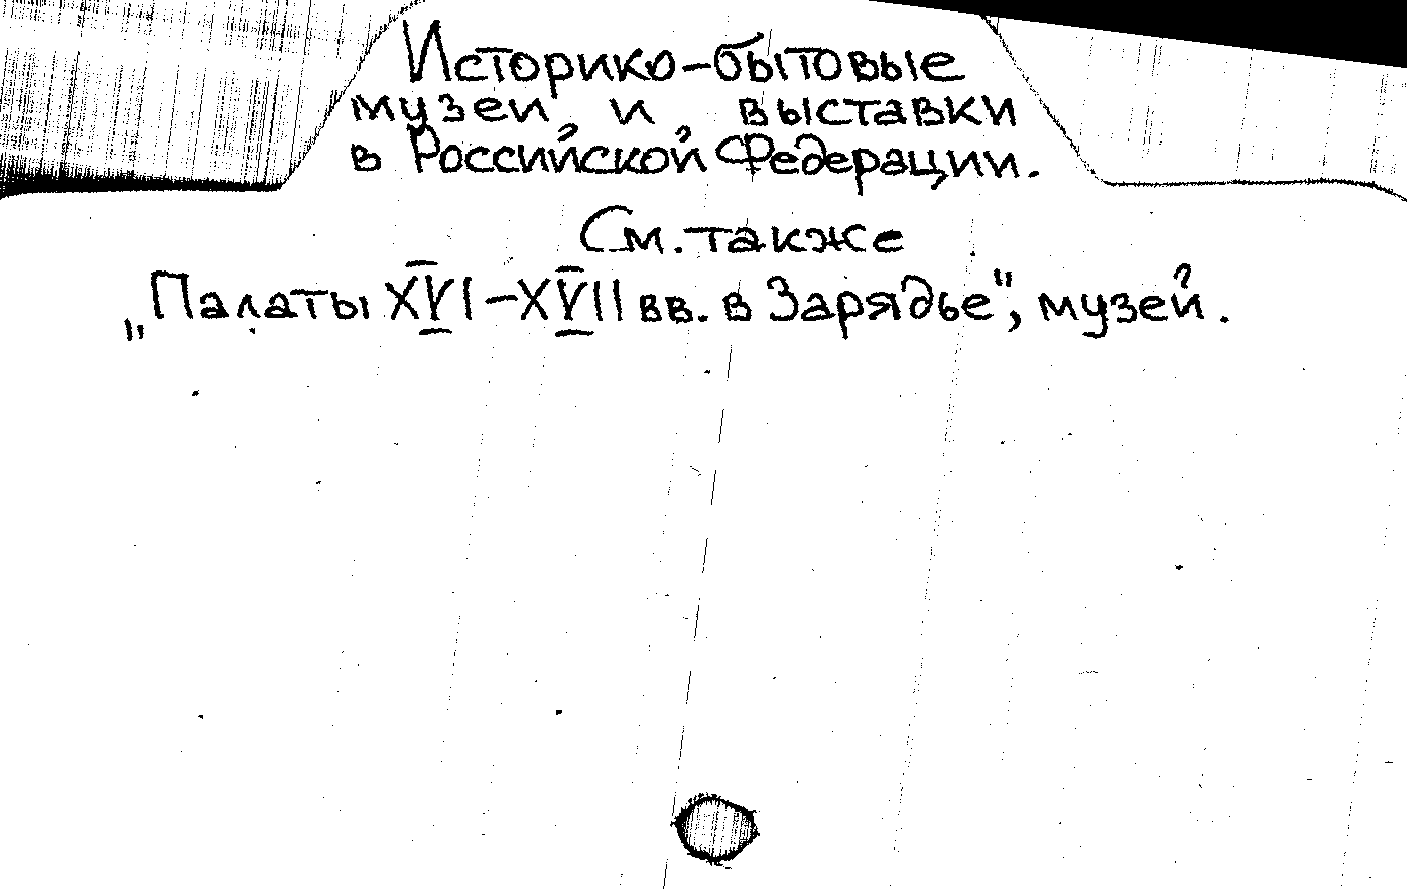 Историко-бытовые
музеи и выставки
в Российской Федерации.
См. также
„Палаты XVI–XVII вв. в Зарядье", музей.